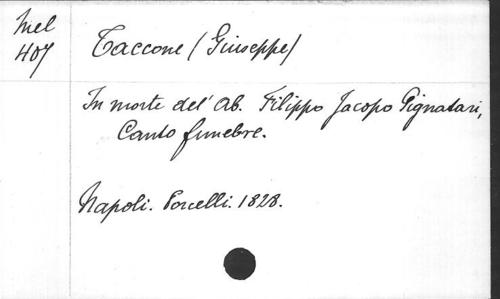 Mel
407
Taccone (Giuseppe)
In morte del' Ab. Filippo Jacopo Pignatari,
Canto funebre.
Napoli. Porcelli. 1828.